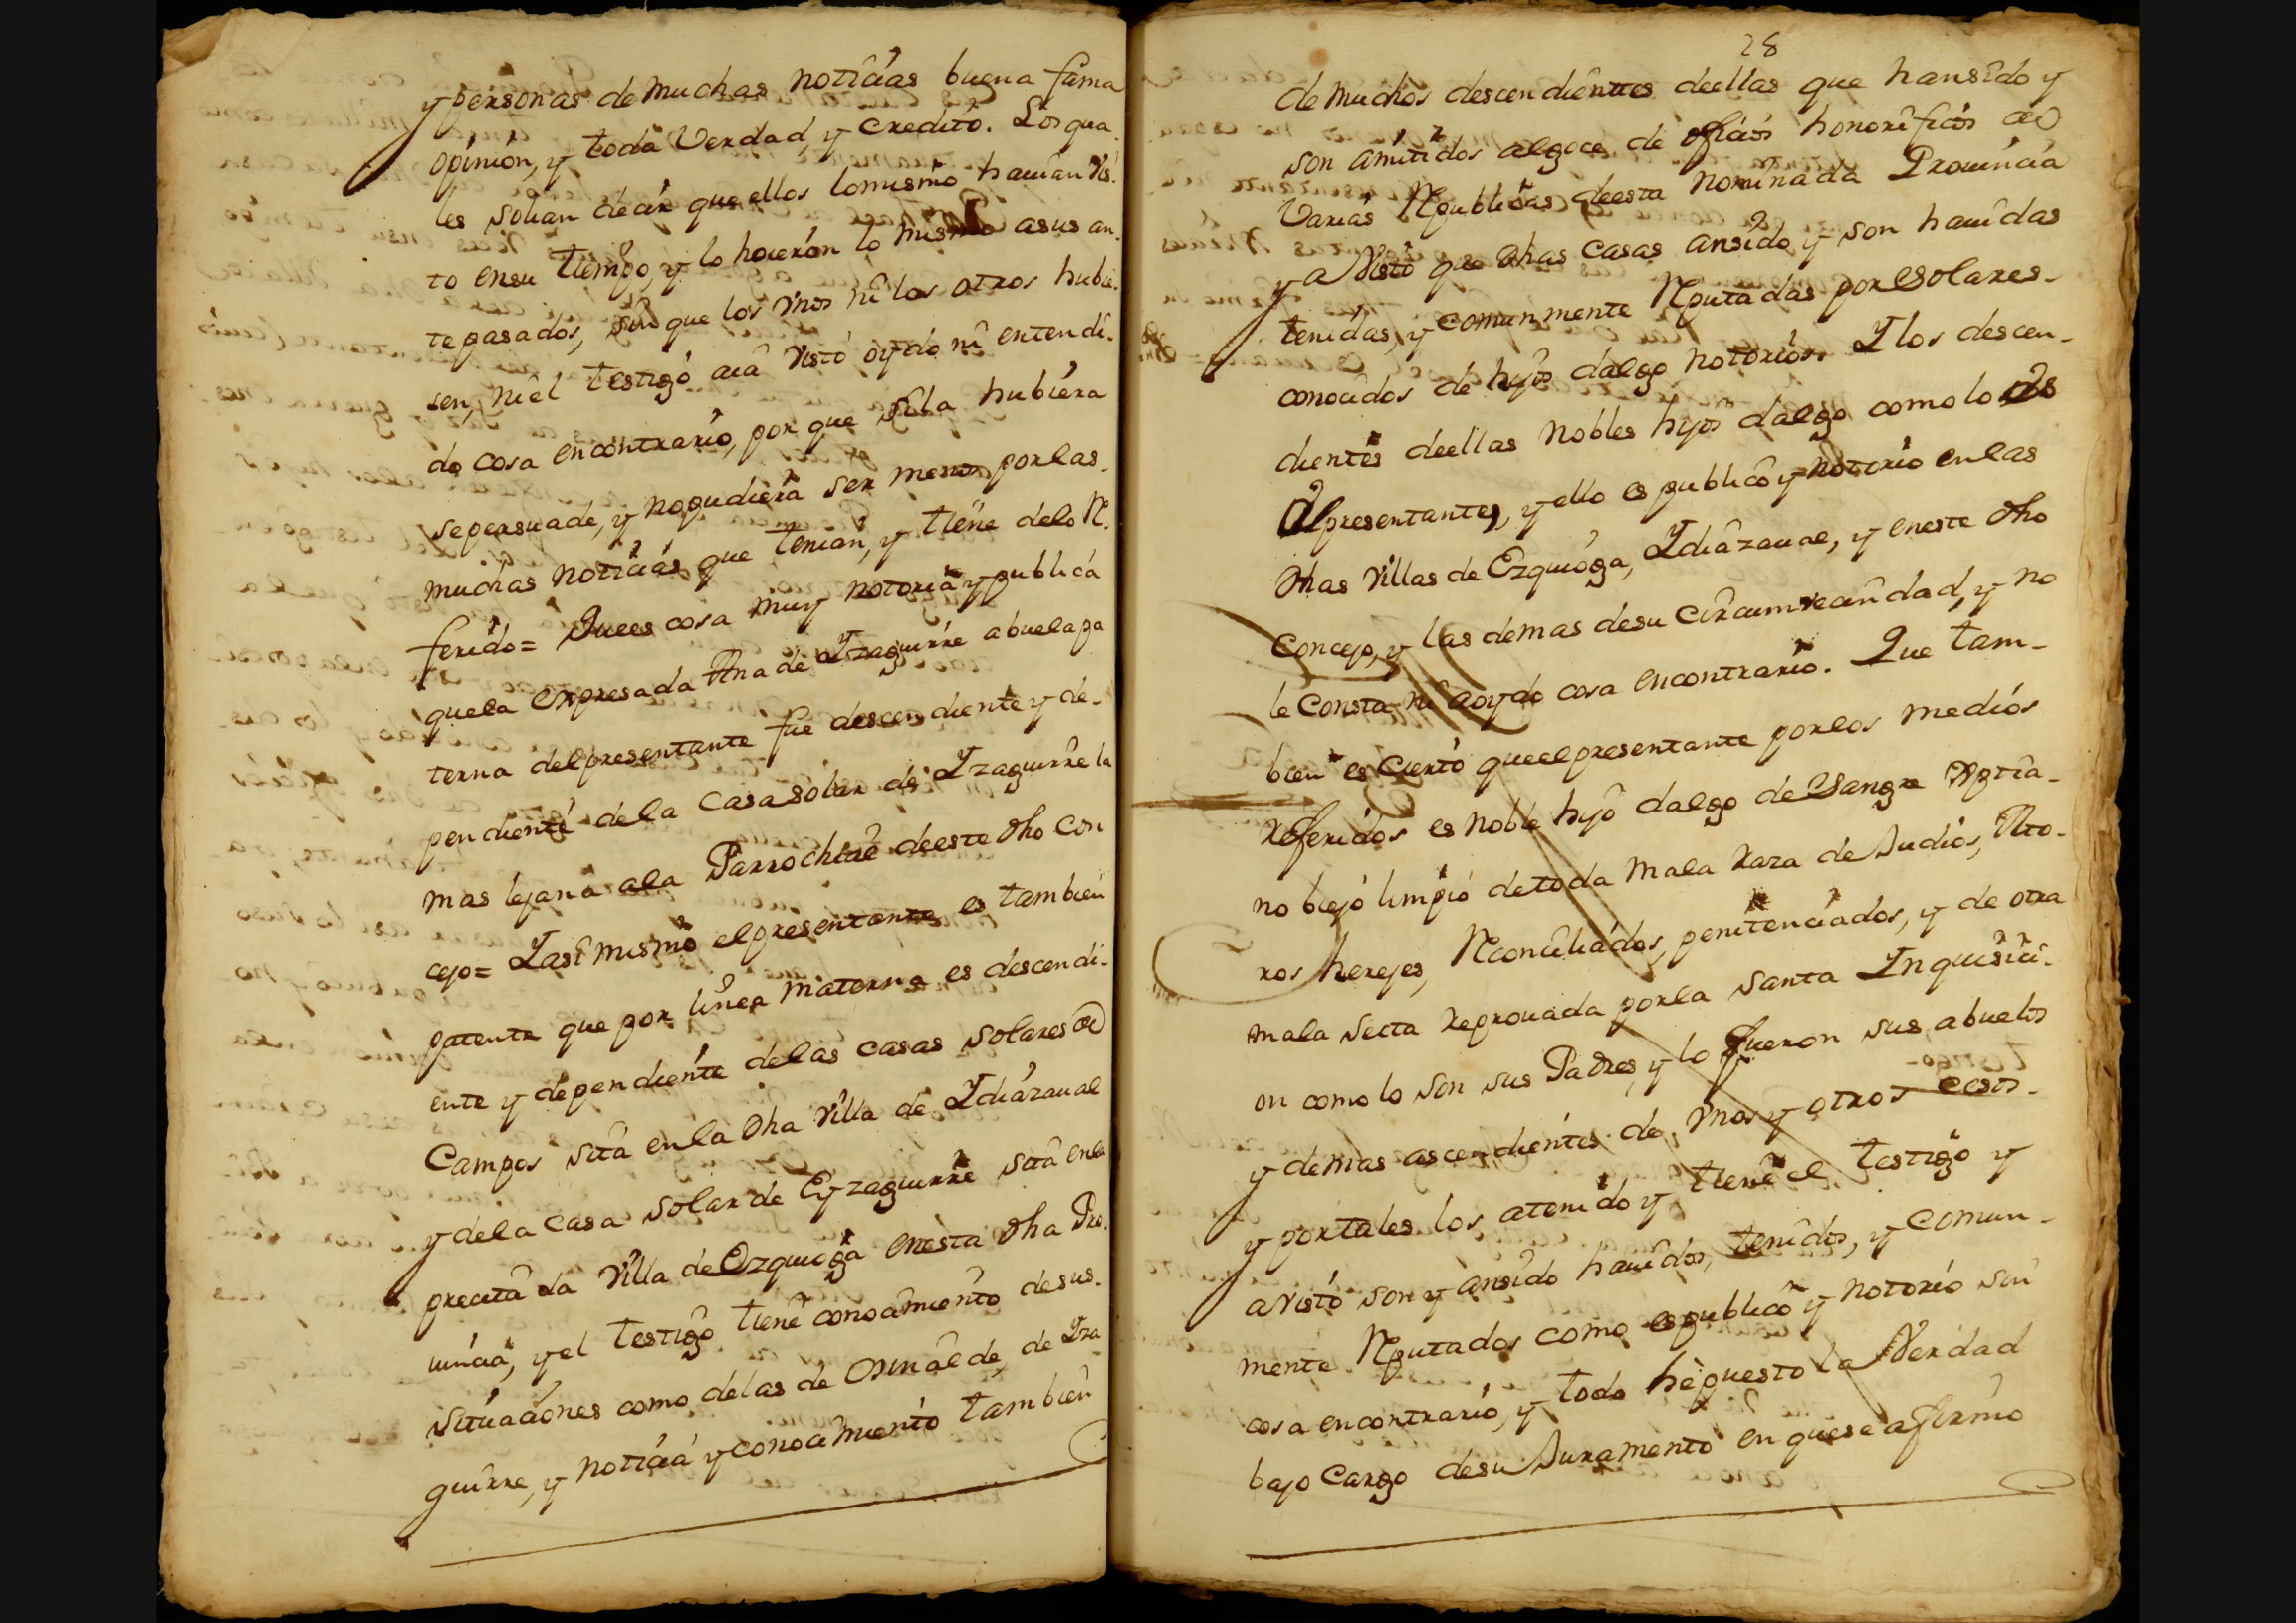 y personas de muchas noticias buena fama
opinion, y toda Verdad, y credito. Los qua-
les solian decir que ellos lo mismo hauian vis-
to en su tiempo, y lo hoieron lo mismo a sus an-
tepasados, sin que los vnos ni los otros hubie-
sen, ni el testigo aia visto oydo ni entendi-
do cosa en contrario, por que si la hubiera
se persuade, y no pudiera ser menos por las
muchas noticias que tenian, y tiene delo R.
ferido = Que es cosa muy notoria y publica
que la expresada Ana de Yzaguirre abuela pa
terna del presentante fue descendiente y de-
pendiente de la Casa solar de Yzaguirre la
mas lejana ala Parrochial de este dho con
cejo = Y asi mismo el presentante es tambien
patente que por linea materna es descendi-
ente y dependiente de las casas solares de
Campos sita en la dha Villa de Ydiazaual
y de la casa solar de Eyzaguirre sita en la
precitada Villa de Ezquioga en esta dha Pro-
uincia, y el testigo tiene conocimiento de sus
situaciones como de las de Osinalde, de Yza
guirre, y noticia y conocimiento tambien
28
de muchos descendientes de ellas que han sido y
son amitidos al goce de oficios honorificos de
Varias Republicas de esta nominada Prouincia
y a visto que dhas casas an sido y son hauidas
tenidas, y comunmente Reputadas por solares
conocidos de hijos dalgo notorios. Y los descen-
dientes de ellas nobles hijos dalgo como lo es
el presentante, y ello es publico y notorio en las
dhas Villas de Ezquioga, Ydiazaual, y en este dho
Concejo, y las demas de su circumvecindad, y no
le consta ni a oydo cosa en contrario. Que tam-
bien es cierto que el presentante por los medios
referidos es noble hijo dalgo de Sangre Xptia-
no biejo limpio de toda mala raza de Judios, Mo-
ros herejes, Reconciliados, penitenciados, y de otra
mala secta reprouada por la Santa Inquisici-
on como lo son sus Padres, y lo fueron sus abuelos
y demas ascendientes de vnos y otros
y por tales los a tenido y tiene el testigo y
a visto son y an sido hauidos, tenidos, y comun-
mente Reputados como es publico y notorio sin
cosa en contrario, y todo hè puesto la Verdad
bajo Cargo de su Juramento en que se afirmo